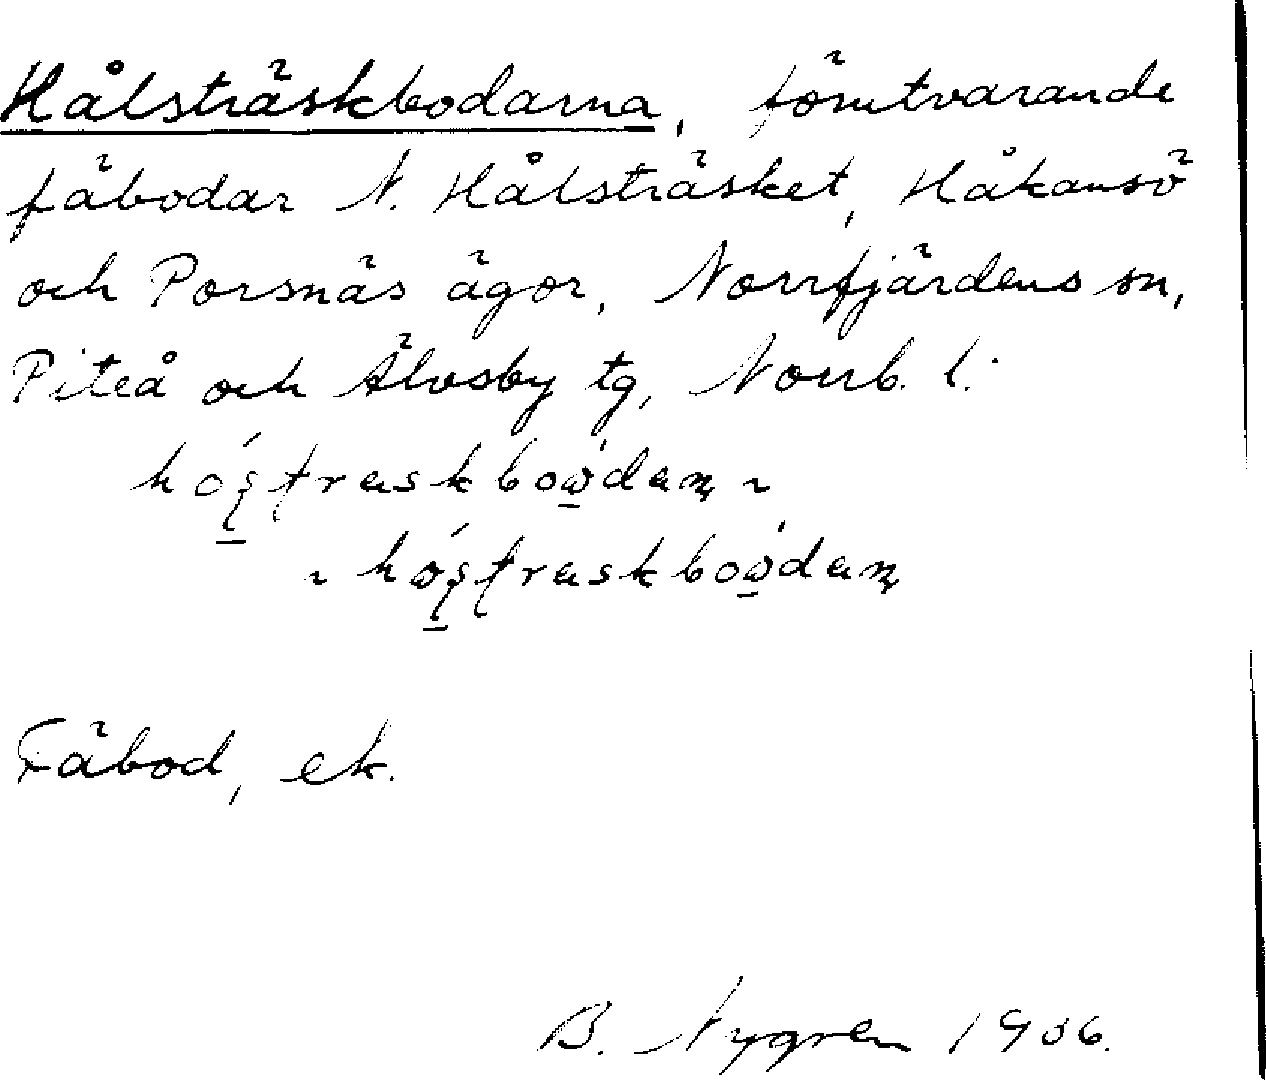 Hålsträskbodarna, förutvarande
fäbodar N. Hålsträsket, Håkansö
och Porsnäs ägor, Norrfjärdens sn,
Piteå och Älvsby tg, Norrb. l.
Fäbod, ek.
B. Nygren 1936.